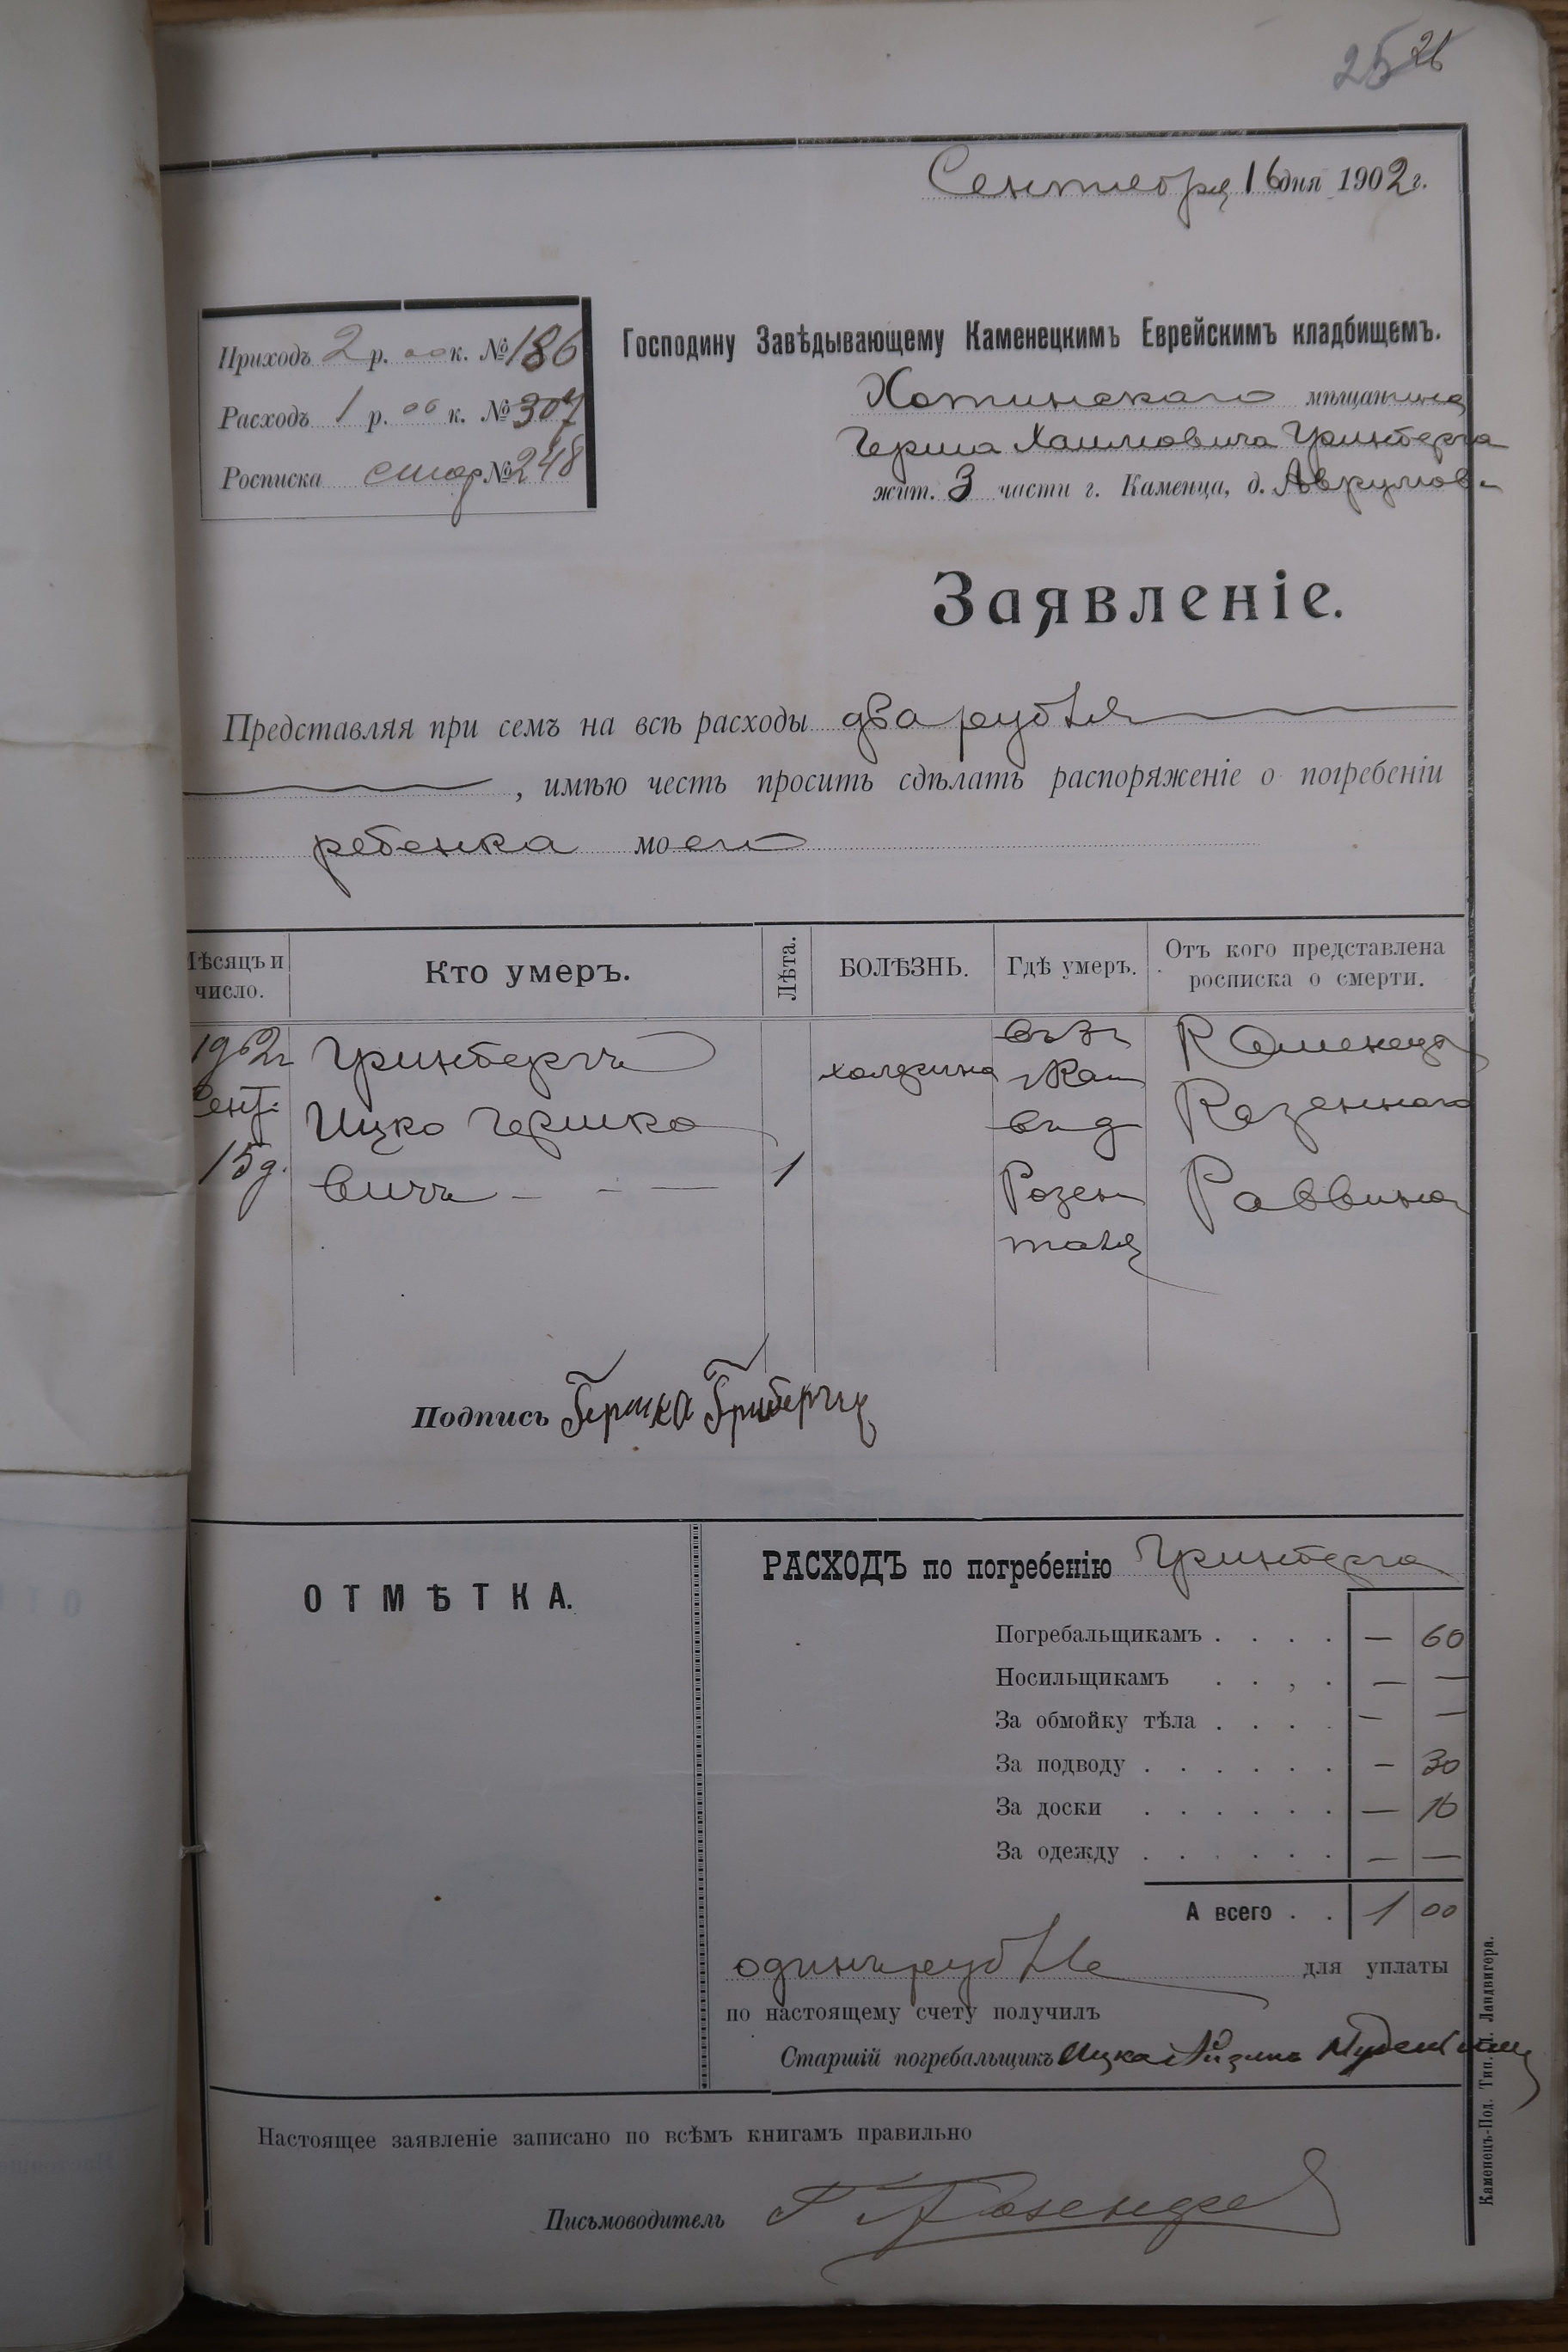 25 26
Сентября 16 дня 1902 г.
Приходъ 2 р. 00 к. № 186
Расходъ 1 р. 00 к. № 307
Росписка стор № 248
Господину Завѣдывающему Каменецкимъ Еврейскимъ кладбищемъ.
Хотинскаго мѣщанина
Герша Хаимовича Гринберга
жит. 3 части г. Каменца, д. Аврумов
Заявленіе.
Представляя при семъ на всѣ расходы два рубля
, имѣю честь просить сдѣлать распоряженіе о погребеніи
ребенка моего
Мѣсяцъ и число.
Кто умеръ.
Лѣта.
БОЛѢЗНЬ.
Гдѣ умеръ.
Отъ кого представлена росписка о смерти.
1902 г
Сент.
15 д.
Гринбергъ
Ицко Гершко
вичъ - - —
1
холерина
въ 3 ч
г Кам
въ д
Розен
таля
Каменецъ
Казеннаго
Раввина
Подпись Гершка Гринбергъ
ОТМѢТКА.
РАСХОДЪ по погребенію Гринберга
Погребальщикамъ . . . . — 60
Носильщикамъ . . , . — —
За обмойку тѣла . . . . — —
За подводу . . . . . . — 30
За доски . . . . . . — 10
За одежду . . . . . . — —
А всего . . 1 00
одинъ рубль для уплаты
по настоящему счету получилъ
Старшій погребальщикъ Ицка Айзикъ
Настоящее заявленіе записано по всѣмъ книгамъ правильно
Письмоводитель
Каменецъ-Под. Тип. Л. Ландвигера.